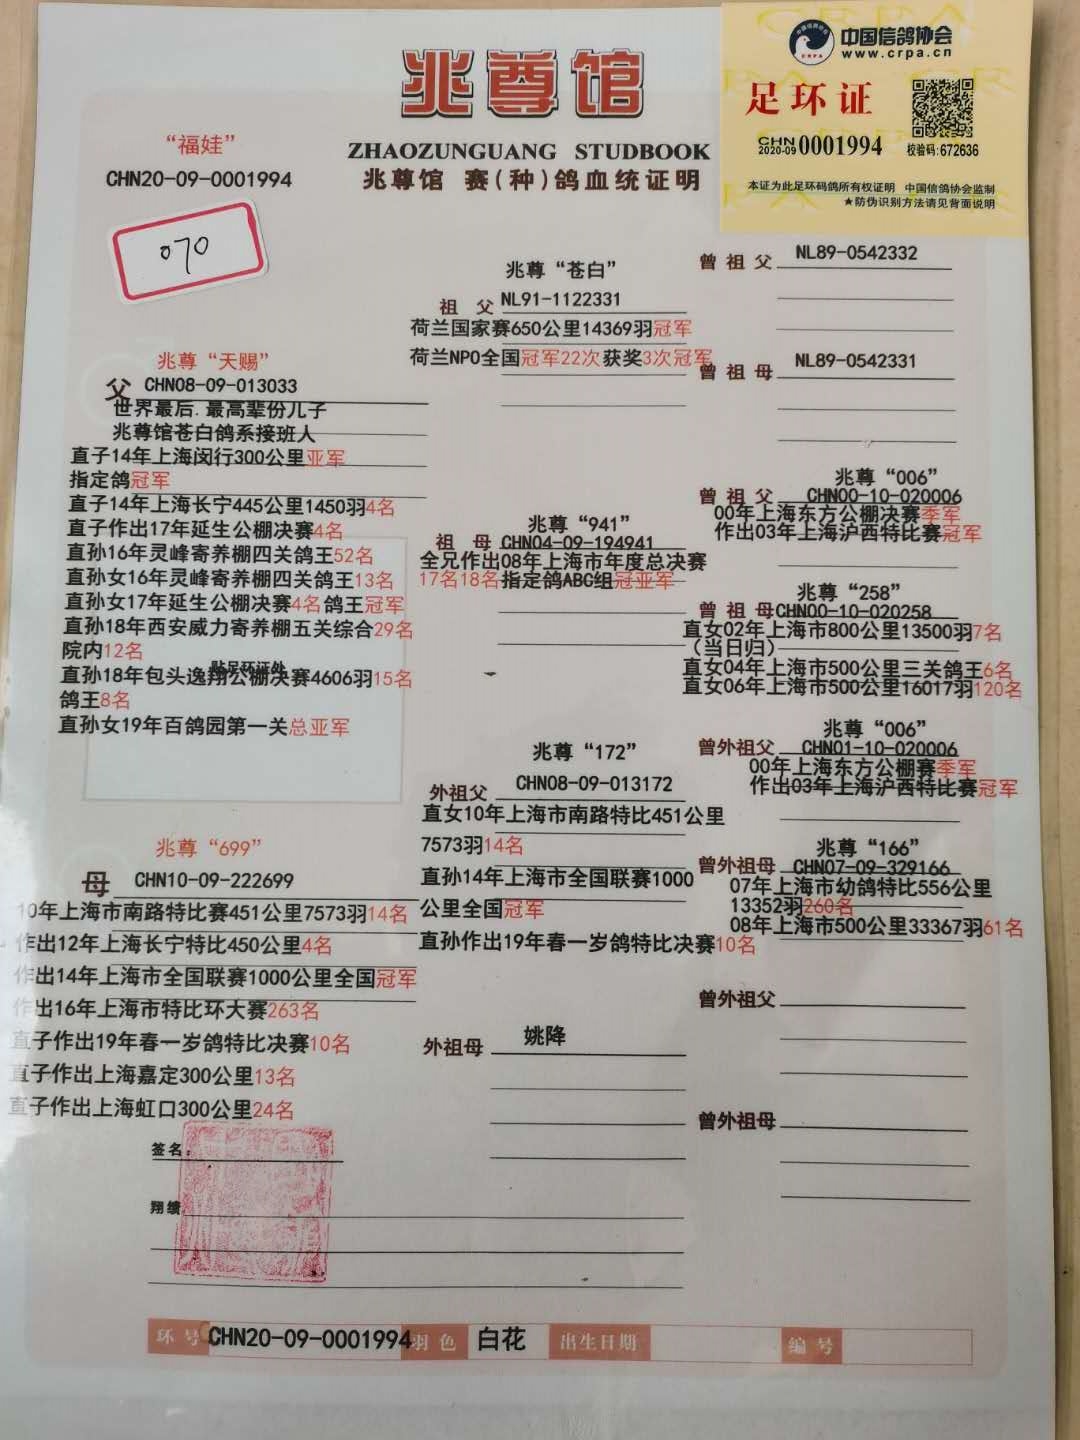 兆尊馆
ZHAOZUNGUANG STUDBOOK
兆尊馆 赛(种)鸽血统证明
中国信鸽协会
www.crpa.cn
CRPA
足环证
CHN
2020-09 0001994
校验码:672636
本证为此足环码鸽所有权证明 中国信鸽协会监制
★防伪识别方法请见背面说明
“福娃”
CHN20-09-0001994
070
兆尊“天赐”
父 CHN08-09-013033
世界最后.最高辈份儿子
兆尊馆苍白鸽系接班人
直子14年上海闵行300公里亚军
指定鸽冠军
直子14年上海长宁445公里1450羽4名
直子作出17年延生公棚决赛4名
直孙16年灵峰寄养棚四关鸽王52名
直孙女16年灵峰寄养棚四关鸽王13名
直孙女17年延生公棚决赛4名鸽王冠军
直孙18年西安威力寄养棚五关综合29名
院内12名
贴足环证处
直孙18年包头逸翔公棚决赛4606羽15名
鸽王8名
直孙女19年百鸽园第一关总亚军
兆尊“699”
母 CHN10-09-222699
10年上海市南路特比赛451公里7573羽14名
作出12年上海长宁特比450公里4名
作出14年上海市全国联赛1000公里全国冠军
作出16年上海市特比环大赛263名
直子作出19年春一岁鸽特比决赛10名
直子作出上海嘉定300公里13名
直子作出上海虹口300公里24名
兆尊“苍白”
祖父 NL91-1122331
荷兰国家赛650公里14369羽冠军
荷兰NPO全国冠军22次获奖3次冠军
兆尊“941”
祖母 CHN04-09-194941
全兄作出08年上海市年度总决赛
17名18名指定鸽ABC组冠亚军
兆尊“172”
外祖父 CHN08-09-013172
直女10年上海市南路特比451公里
7573羽14名
直孙14年上海市全国联赛1000
公里全国冠军
直孙作出19年春一岁鸽特比决赛10名
外祖母 姚降
曾祖父 NL89-0542332
曾祖母 NL89-0542331
兆尊“006”
曾祖父 CHN00-10-020006
00年上海东方公棚决赛季军
作出03年上海沪西特比赛冠军
兆尊“258”
曾祖母CHN00-10-020258
直女02年上海市800公里13500羽7名
(当日归)
直女04年上海市500公里三关鸽王6名
直女06年上海市500公里16017羽120名
兆尊“006”
曾外祖父 CHN01-10-020006
00年上海东方公棚赛季军
作出03年上海沪西特比赛冠军
兆尊“166”
曾外祖母 CHN07-09-329166
07年上海市幼鸽特比556公里
13352羽260名
08年上海市500公里33367羽61名
曾外祖父
曾外祖母
签名
翔绩
环号 CHN20-09-0001994 羽色 白花 出生日期 编号